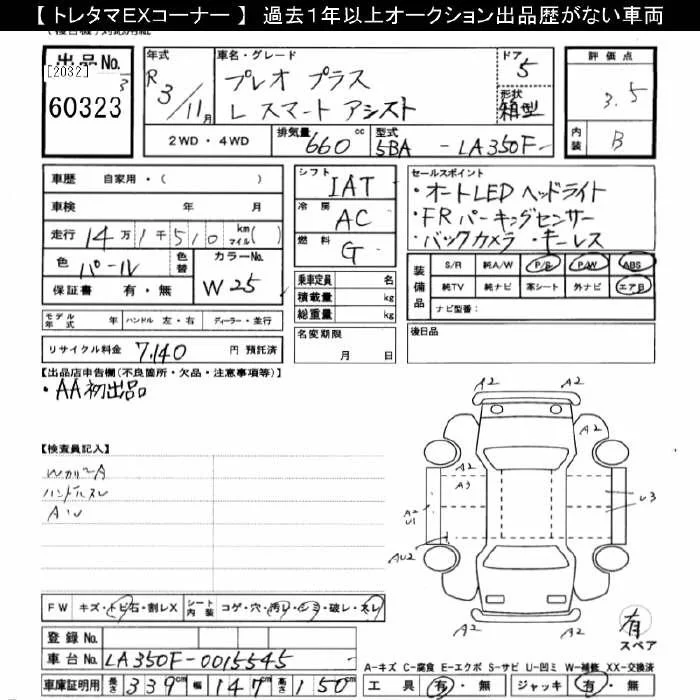 【 トレタマEXコーナー 】 過去１年以上オークション出品歴がない車両
出品No.
[2032]
3
60323
年式
R 3/11月
車名・グレード
プレオ プラス
L スマート アシスト
ドア
5
形状
箱型
評価点
3.5
内装
B
2WD・4WD
排気量
660 cc
型式
5BA - LA350F -
車歴 自家用・( )
車検 年 月
走行 14万1千510 km マイル( )
色 パール 色替
カラーNo.
W25
保証書 有・無
シフト
IAT
冷房
AC
燃料
G
セールスポイント
・オートLED ヘッドライト
・FR パーキングセンサー
・バックカメラ・キーレス
装備品
S/R 純A/W P/S P/W ABS
純TV 純ナビ 革シート 外ナビ エアB
ナビ型番:
乗車定員 名
積載量 kg
総重量 kg
モデル年式 年 ハンドル 左・右 ディーラー・並行
名変期限
月 日
後日品
リサイクル料金 7,140 円 預託済
【出品店申告欄(不良箇所・欠品・注意事項等)】
・AA初出品
【検査員記入】
ハンドルスレ
A2 A2
A2 A2
A2
A3
A2
U1
U3
AU2
FW キズ・トビ石・割レX シート内装 コゲ・穴・汚レ・シミ・破レ・スレ
有
スペア
登録 No.
車台 No. LA350F-0015545
A-キズ C-腐食 E-エクボ S-サビ U-凹ミ W-補修 XX-交換済
車庫証明用 長さ 339 cm 幅 147 cm 高さ 150 cm
工具 有・無 ジャッキ 有・無